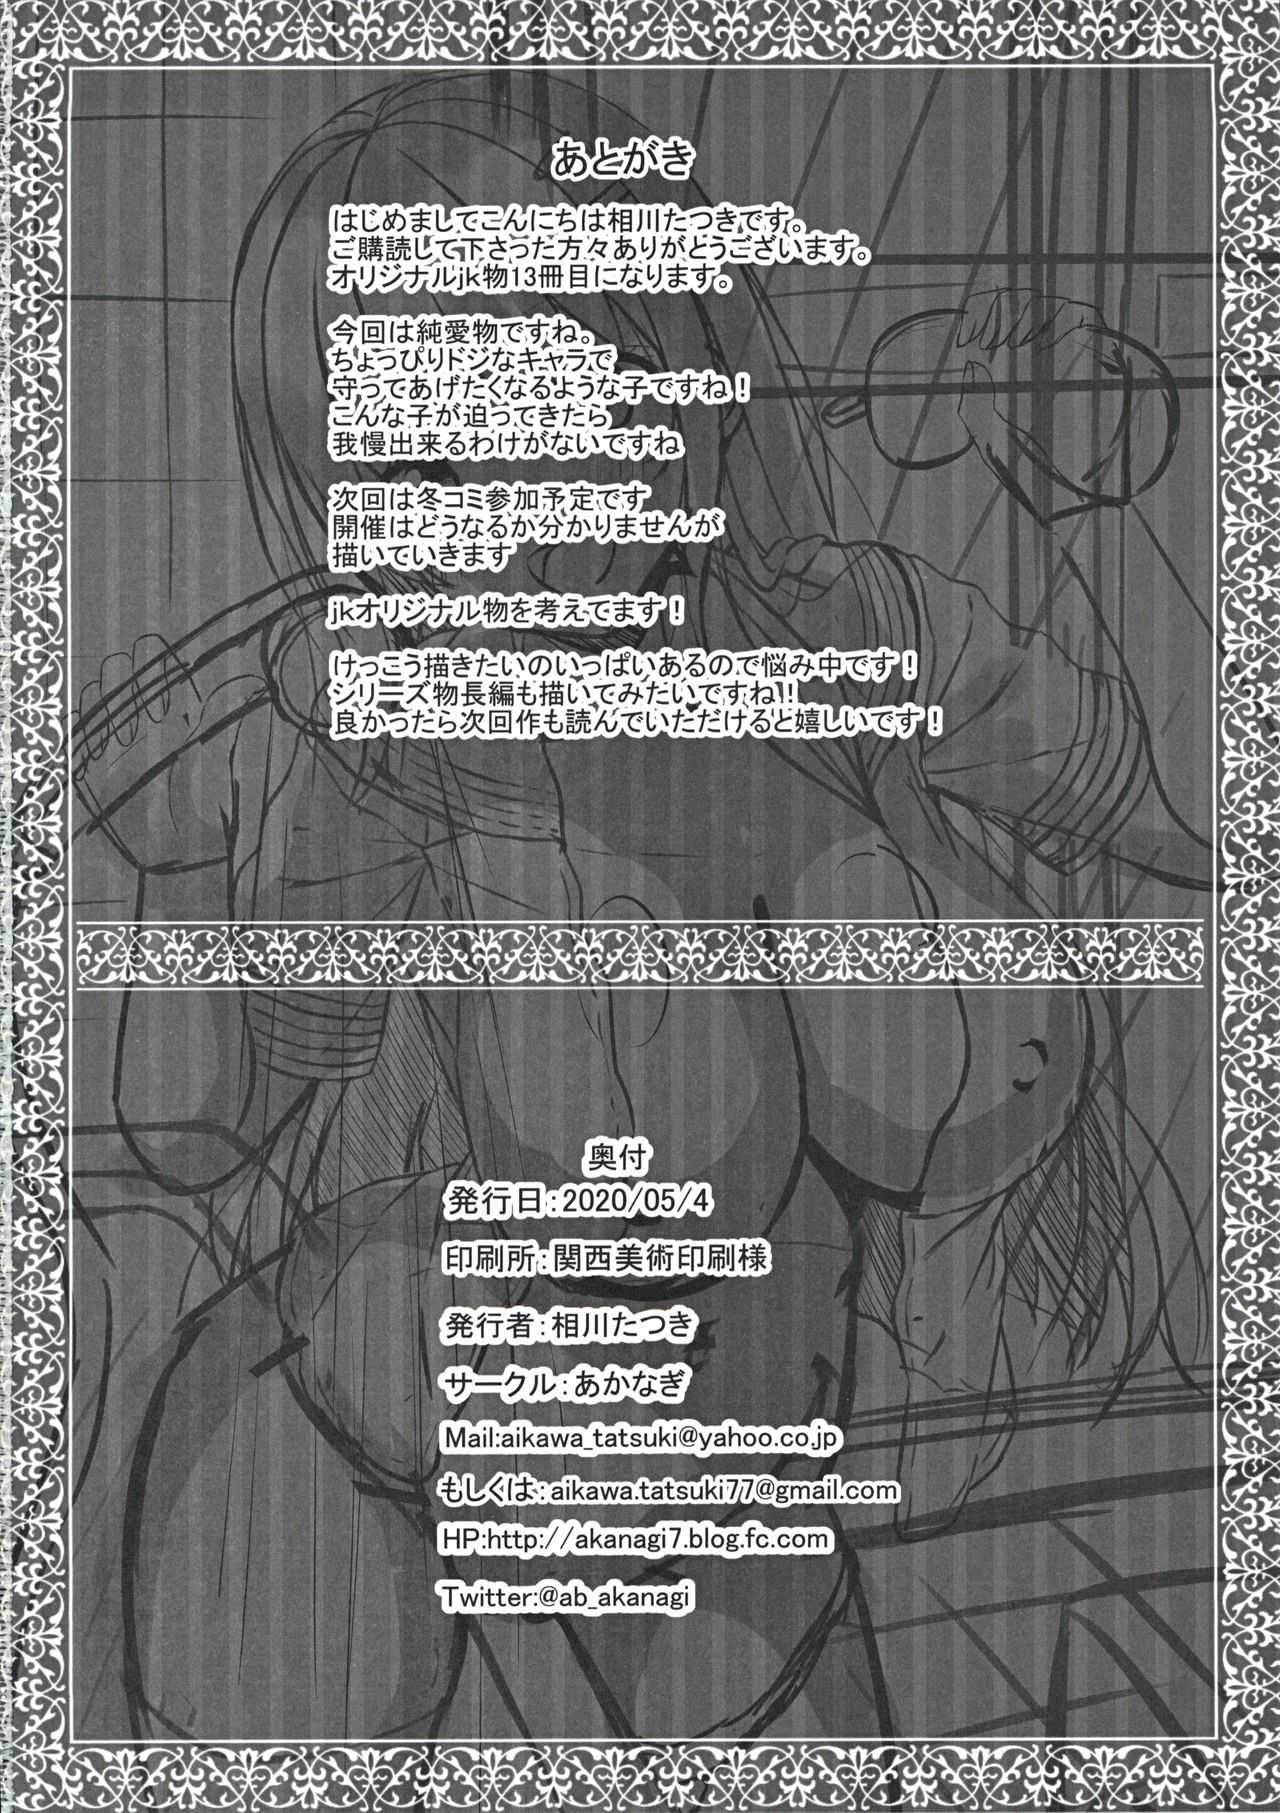 あとがき
はじめましてこんにちは相川たつきです。
ご購読して下さった方々ありがとうございます。
オリジナルjk物13冊目になります。
今回は純愛物ですね。
ちょっぴりドジなキャラで
守ってあげたくなるような子ですね！
こんな子が迫ってきたら
我慢出来るわけがないですね
次回は冬コミ参加予定です
開催はどうなるか分かりませんが
描いていきます
jkオリジナル物を考えてます！
けっこう描きたいのいっぱいあるので悩み中です！
シリーズ物長編も描いてみたいですね！
良かったら次回作も読んでいただけると嬉しいです！
奥付
発行日：2020/05/4
印刷所：関西美術印刷様
発行者：相川たつき
サークル：あかなぎ
Mail:aikawa_tatsuki@yahoo.co.jp
もしくは：aikawa.tatsuki77@gmail.com
HP:http://akanagi7.blog.fc.com
Twitter:@ab_akanagi